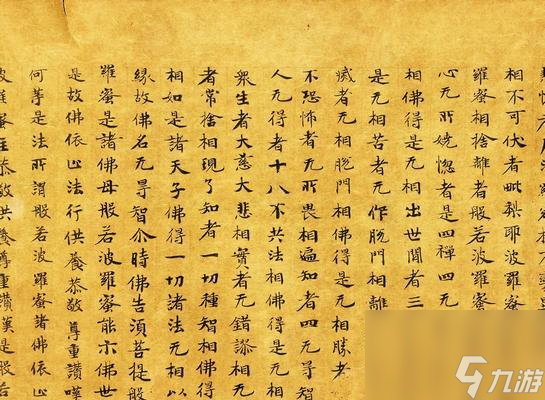 相不可伏者毗梨耶波
羅蜜相捨離者般若波羅蜜
心无所嬈惚者是四禪四无
相佛得是无相出世間者三
是无相苦者无作脫門相離
滅者无相脫門相佛得是无相勝者
不恐怖者无所畏相遍知者四无㝵智
人无得者十八不共法相佛得是无相
衆生者大慈大悲相實者无錯謬相无
者常捨相現了知者一切種智相佛得
相如是諸天子佛得一切諸法无相以
緣故佛名无㝵智尒時佛告湏菩提般
羅蜜是諸佛母般若波羅蜜能示佛世
是故佛依止法行供養恭敬尊重讚嘆
何等是法所謂般若波羅蜜諸佛依止
恭敬供養尊重讚嘆是般若
九游